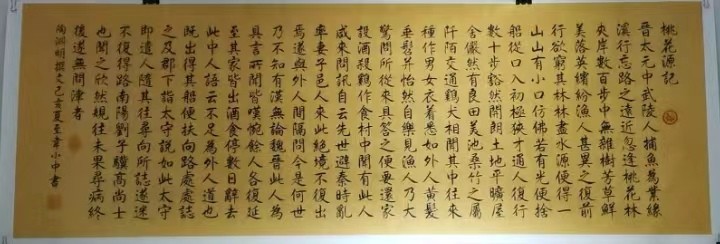 桃花源記
晉太元中武陵人捕魚為業緣
溪行忘路之遠近忽逢桃花林
夾岸數百步中無雜樹芳草鮮
美落英繽紛漁人甚異之復前
行欲窮其林林盡水源便得一
山山有小口仿佛若有光便捨
船從口入初極狹才通人復行
數十步豁然開朗土地平曠屋
舍儼然有良田美池桑竹之屬
阡陌交通鷄犬相聞其中往來
種作男女衣着悉如外人黃髮
垂髫并怡然自樂見漁人乃大
驚問所從來具答之便要還家
設酒殺鷄作食村中聞有此人
咸來問訊自云先世避秦時亂
率妻子邑人來此絕境不復出
焉遂與外人間隔問今是何世
乃不知有漢無論魏晉此人為
具言所聞皆嘆惋餘人各復延
至其家皆出酒食停數日辭去
此中人語云不足為外人道也
既出得其船便扶向路處處誌
之及郡下詣太守說如此太守
即遣人隨其往尋向所誌遂迷
不復得路南陽劉子驥高尚士
也聞之欣然規往未果尋病終
後遂無問津者
陶淵明撰文己亥夏至韋小中書